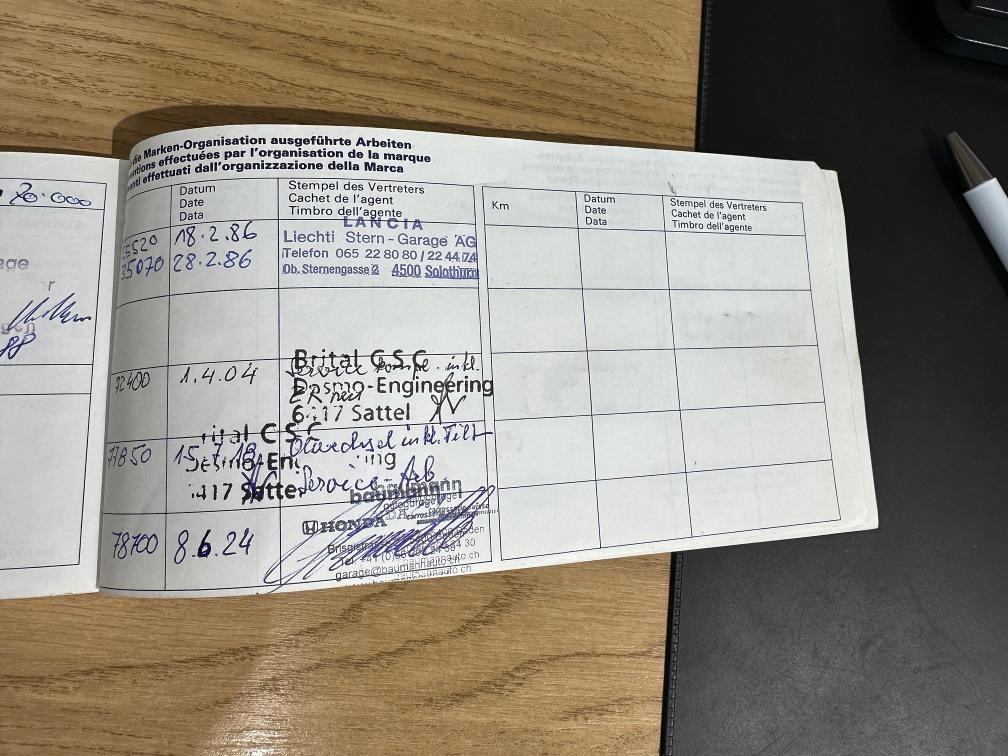 20.000
die Marken-Organisation ausgeführte Arbeiten
effectuées par l'organisation de la marque
effettuati dall'organizzazione della Marca
Datum
Date
Data
Stempel des Vertreters
Cachet de l'agent
Timbro dell'agente
Km
Datum
Date
Data
Stempel des Vertreters
Cachet de l'agent
Timbro dell'agente
18.2.86
35070 28.2.86
LANCIA
Liechti Stern-Garage AG
Telefon 065 22 80 80 / 22 44 74
Ob. Sternengasse 2 4500 Solothurn
72400 1.4.04
Brital C.S.C.
Service inkl.
Desmo-Engineering
6417 Sattel
77850
Brital C.S.C.
Ölwechsel inkl. Filt
6417 Sattel
Service-Arb
baumann
78700 8.6.24
HONDA
garage@baumannauto.ch
www.baumannauto.ch